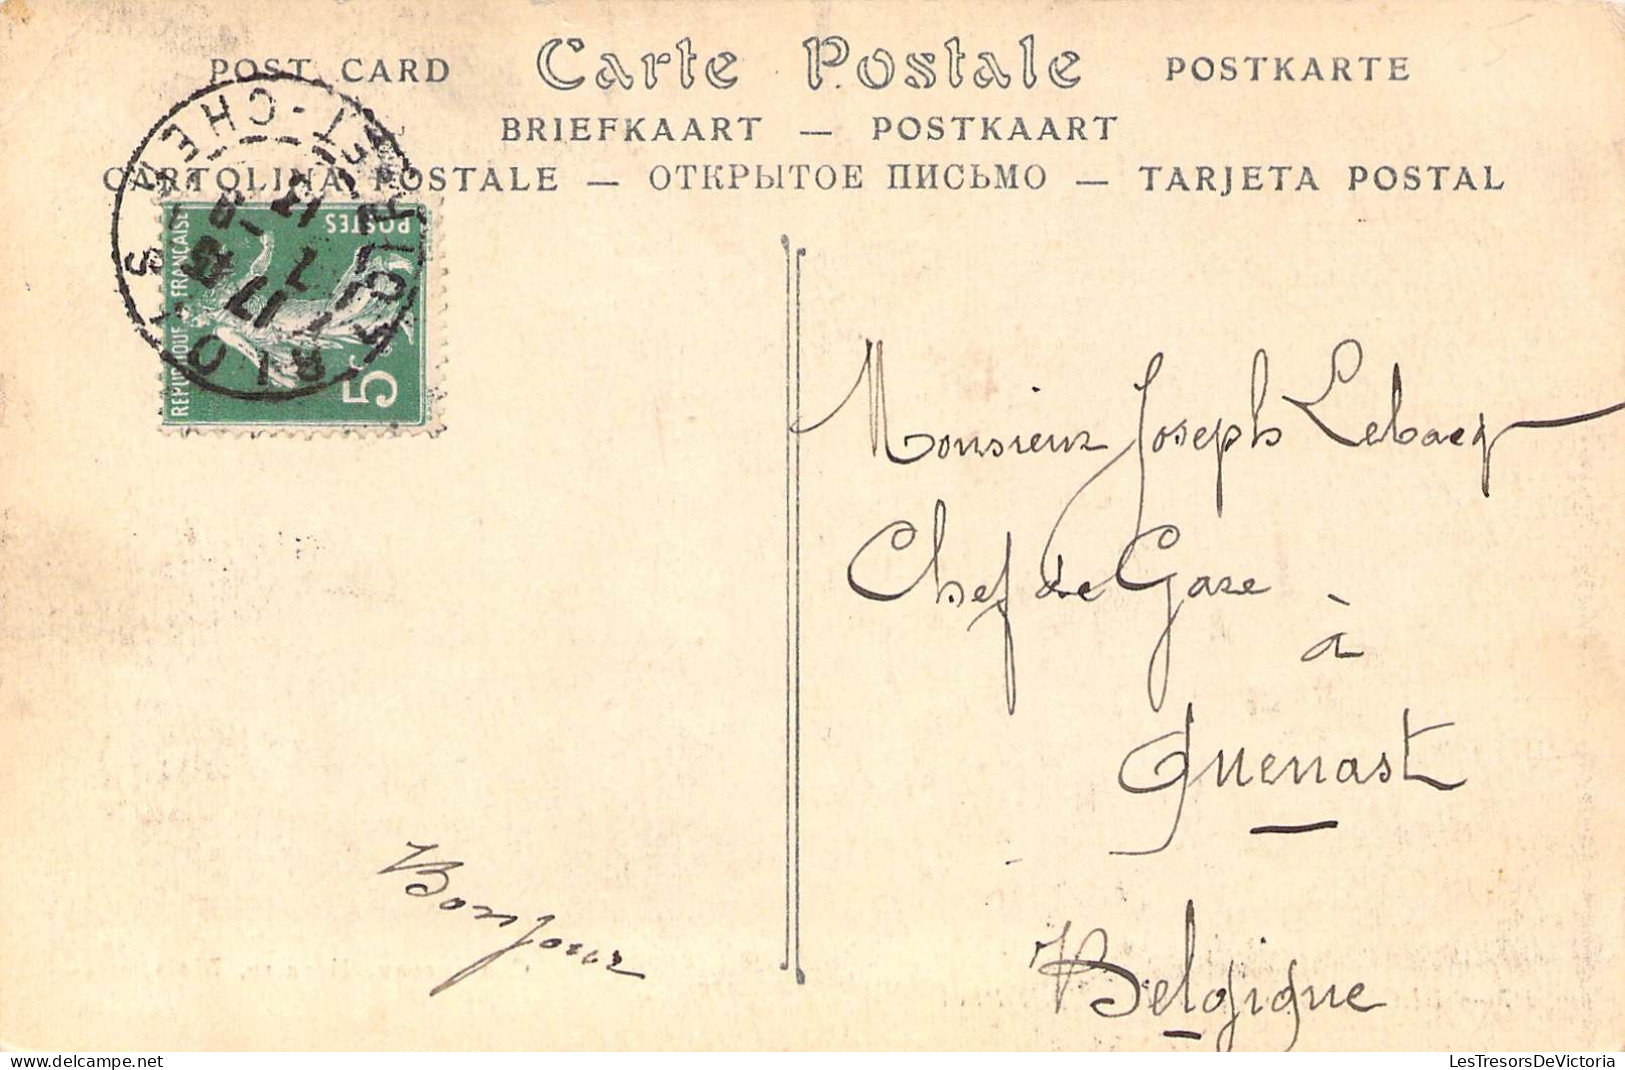 POST CARD Carte Postale POSTKARTE
BRIEFKAART — POSTKAART
CARTOLINA POSTALE — ОТКРЫТОЕ ПИСЬМО — TARJETA POSTAL
REPUBLIQUE FRANÇAISE
POSTES
5c
Monsieur Joseph Lebacq
Chef de Gare
à
Quenast
Belgique
Bonjour
LesTresorsDeVictoria